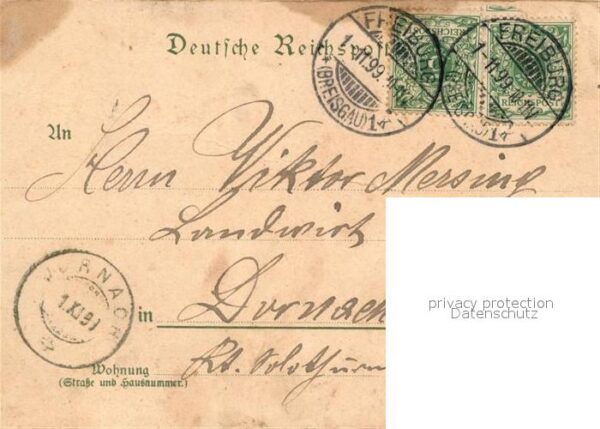 Deutsche Reichspost
FREIBURG
1.11.99.
(BREISGAU)
1*
FREIBURG
1-11.99.
REICHSPOST
An
Herrn Viktor Mersing
Landwirt
in Dornach
Kt. Solothurn
DORNACH
1.XI.99
Wohnung
(Straße und Hausnummer.)
privacy protection
Datenschutz